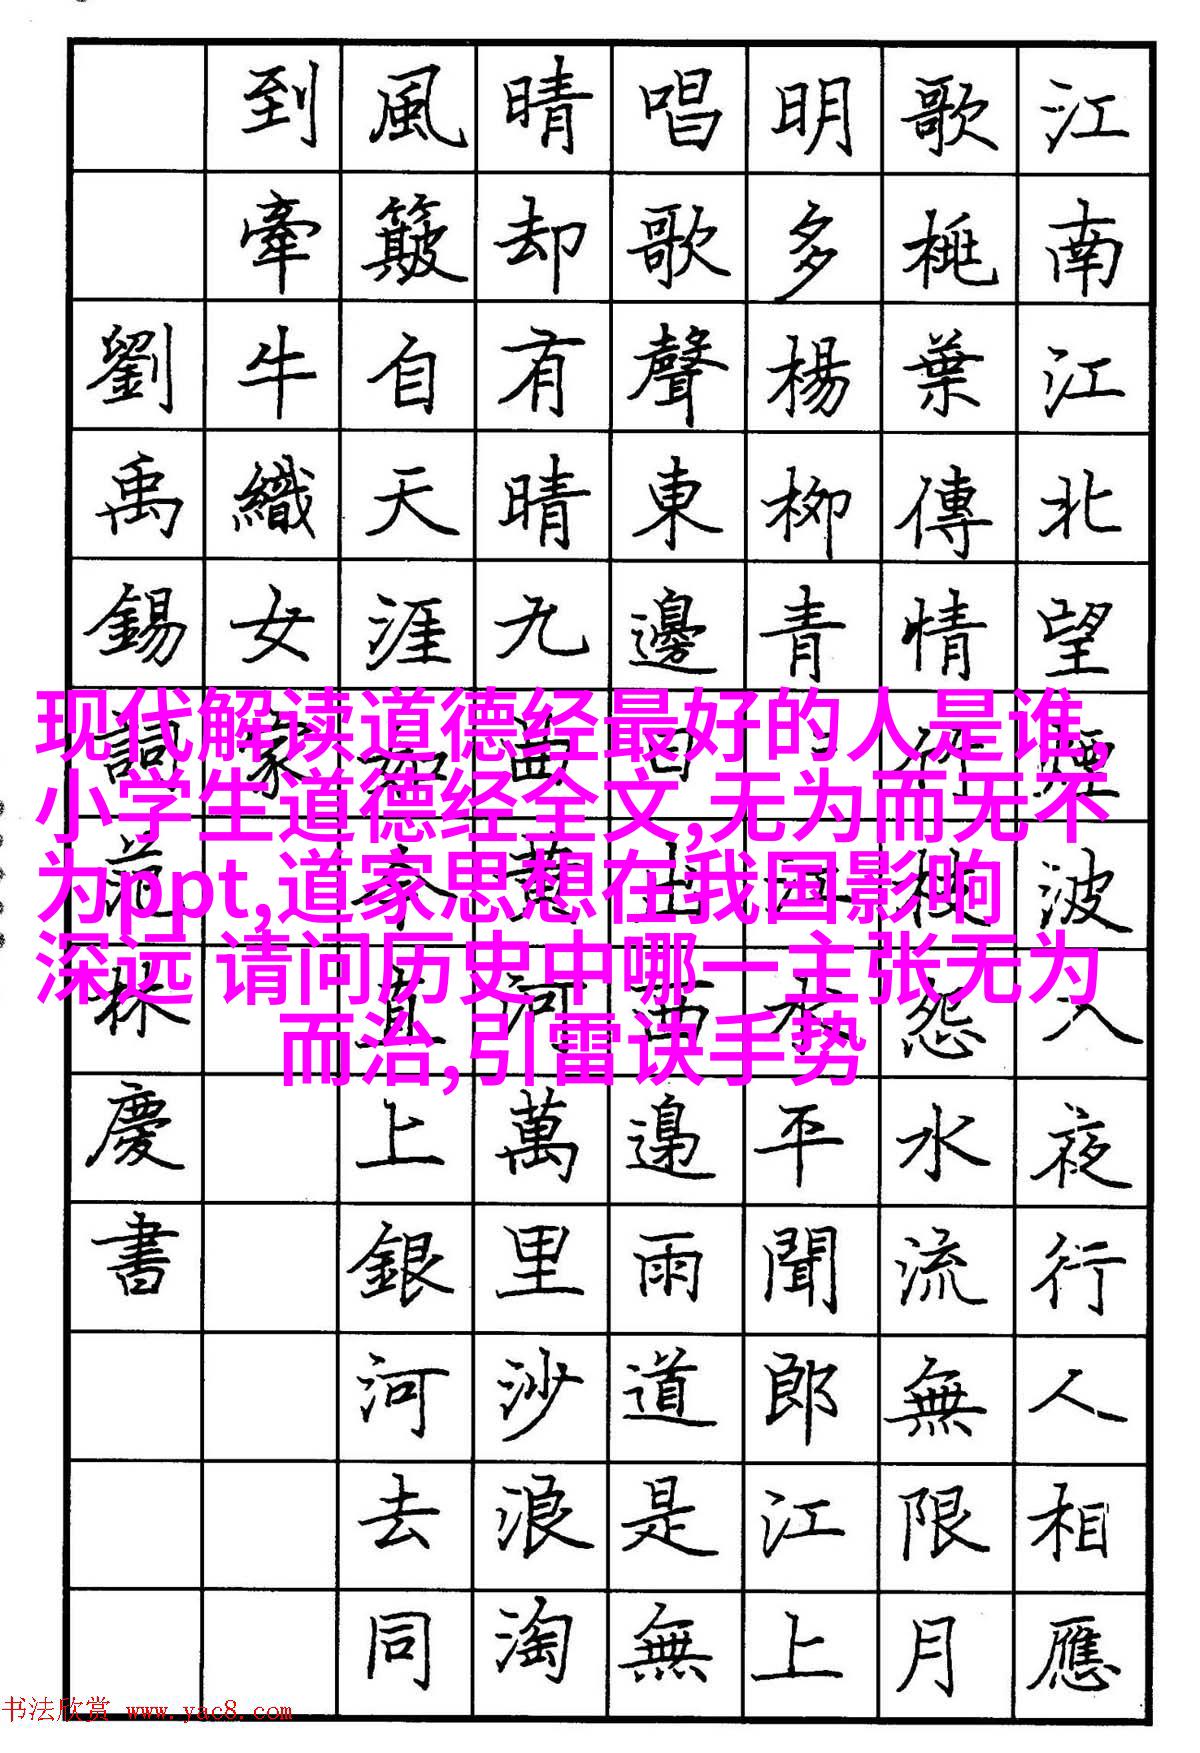 江南江北望煙波入夜行人相應
歌桃葉傳情竹枝怨水流無限月
明多楊柳青江水平聞郎江上
唱歌聲東邊日出西邊雨道是無
晴却有晴九曲黄河萬里沙浪淘
風簸自天涯如今直上銀河去同
到牽牛織女家
劉禹錫詞范林慶書
现代解读道德经最好的人是谁,
小学生道德经全文,无为而无不
为ppt,道家思想在我国影响
深远 请问历史中哪一主张无为
而治,引雷诀手势
书法欣赏 www.yac8.com